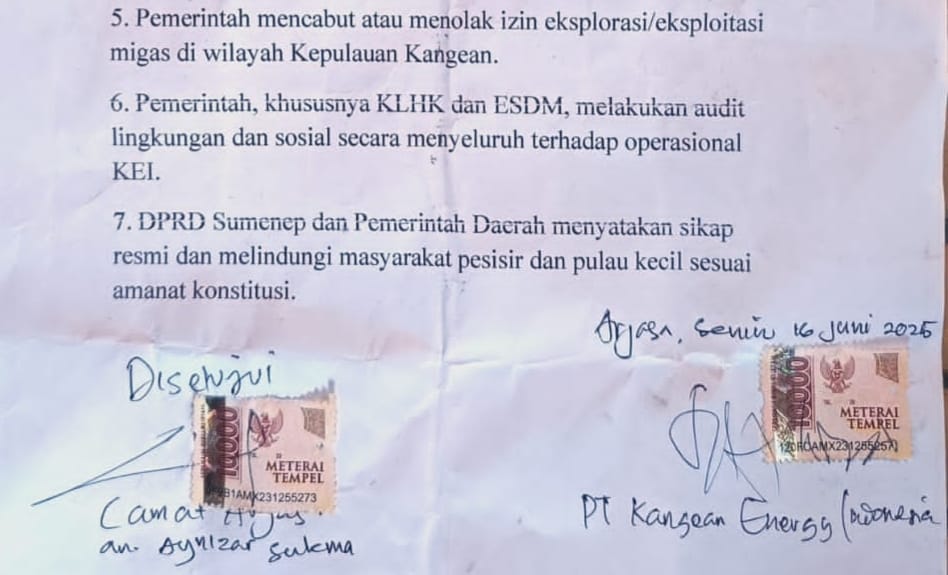 5. Pemerintah mencabut atau menolak izin eksplorasi/eksploitasi
migas di wilayah Kepulauan Kangean.
6. Pemerintah, khususnya KLHK dan ESDM, melakukan audit
lingkungan dan sosial secara menyeluruh terhadap operasional
KEI.
7. DPRD Sumenep dan Pemerintah Daerah menyatakan sikap
resmi dan melindungi masyarakat pesisir dan pulau kecil sesuai
amanat konstitusi.
Arjasa, Senin 16 Juni 2025
Disetujui
10000
METERAI
TEMPEL
AMX231255273
Camat
an. Aynizar Sukma
10000
METERAI
TEMPEL
PT Kangean Energy Indonesia